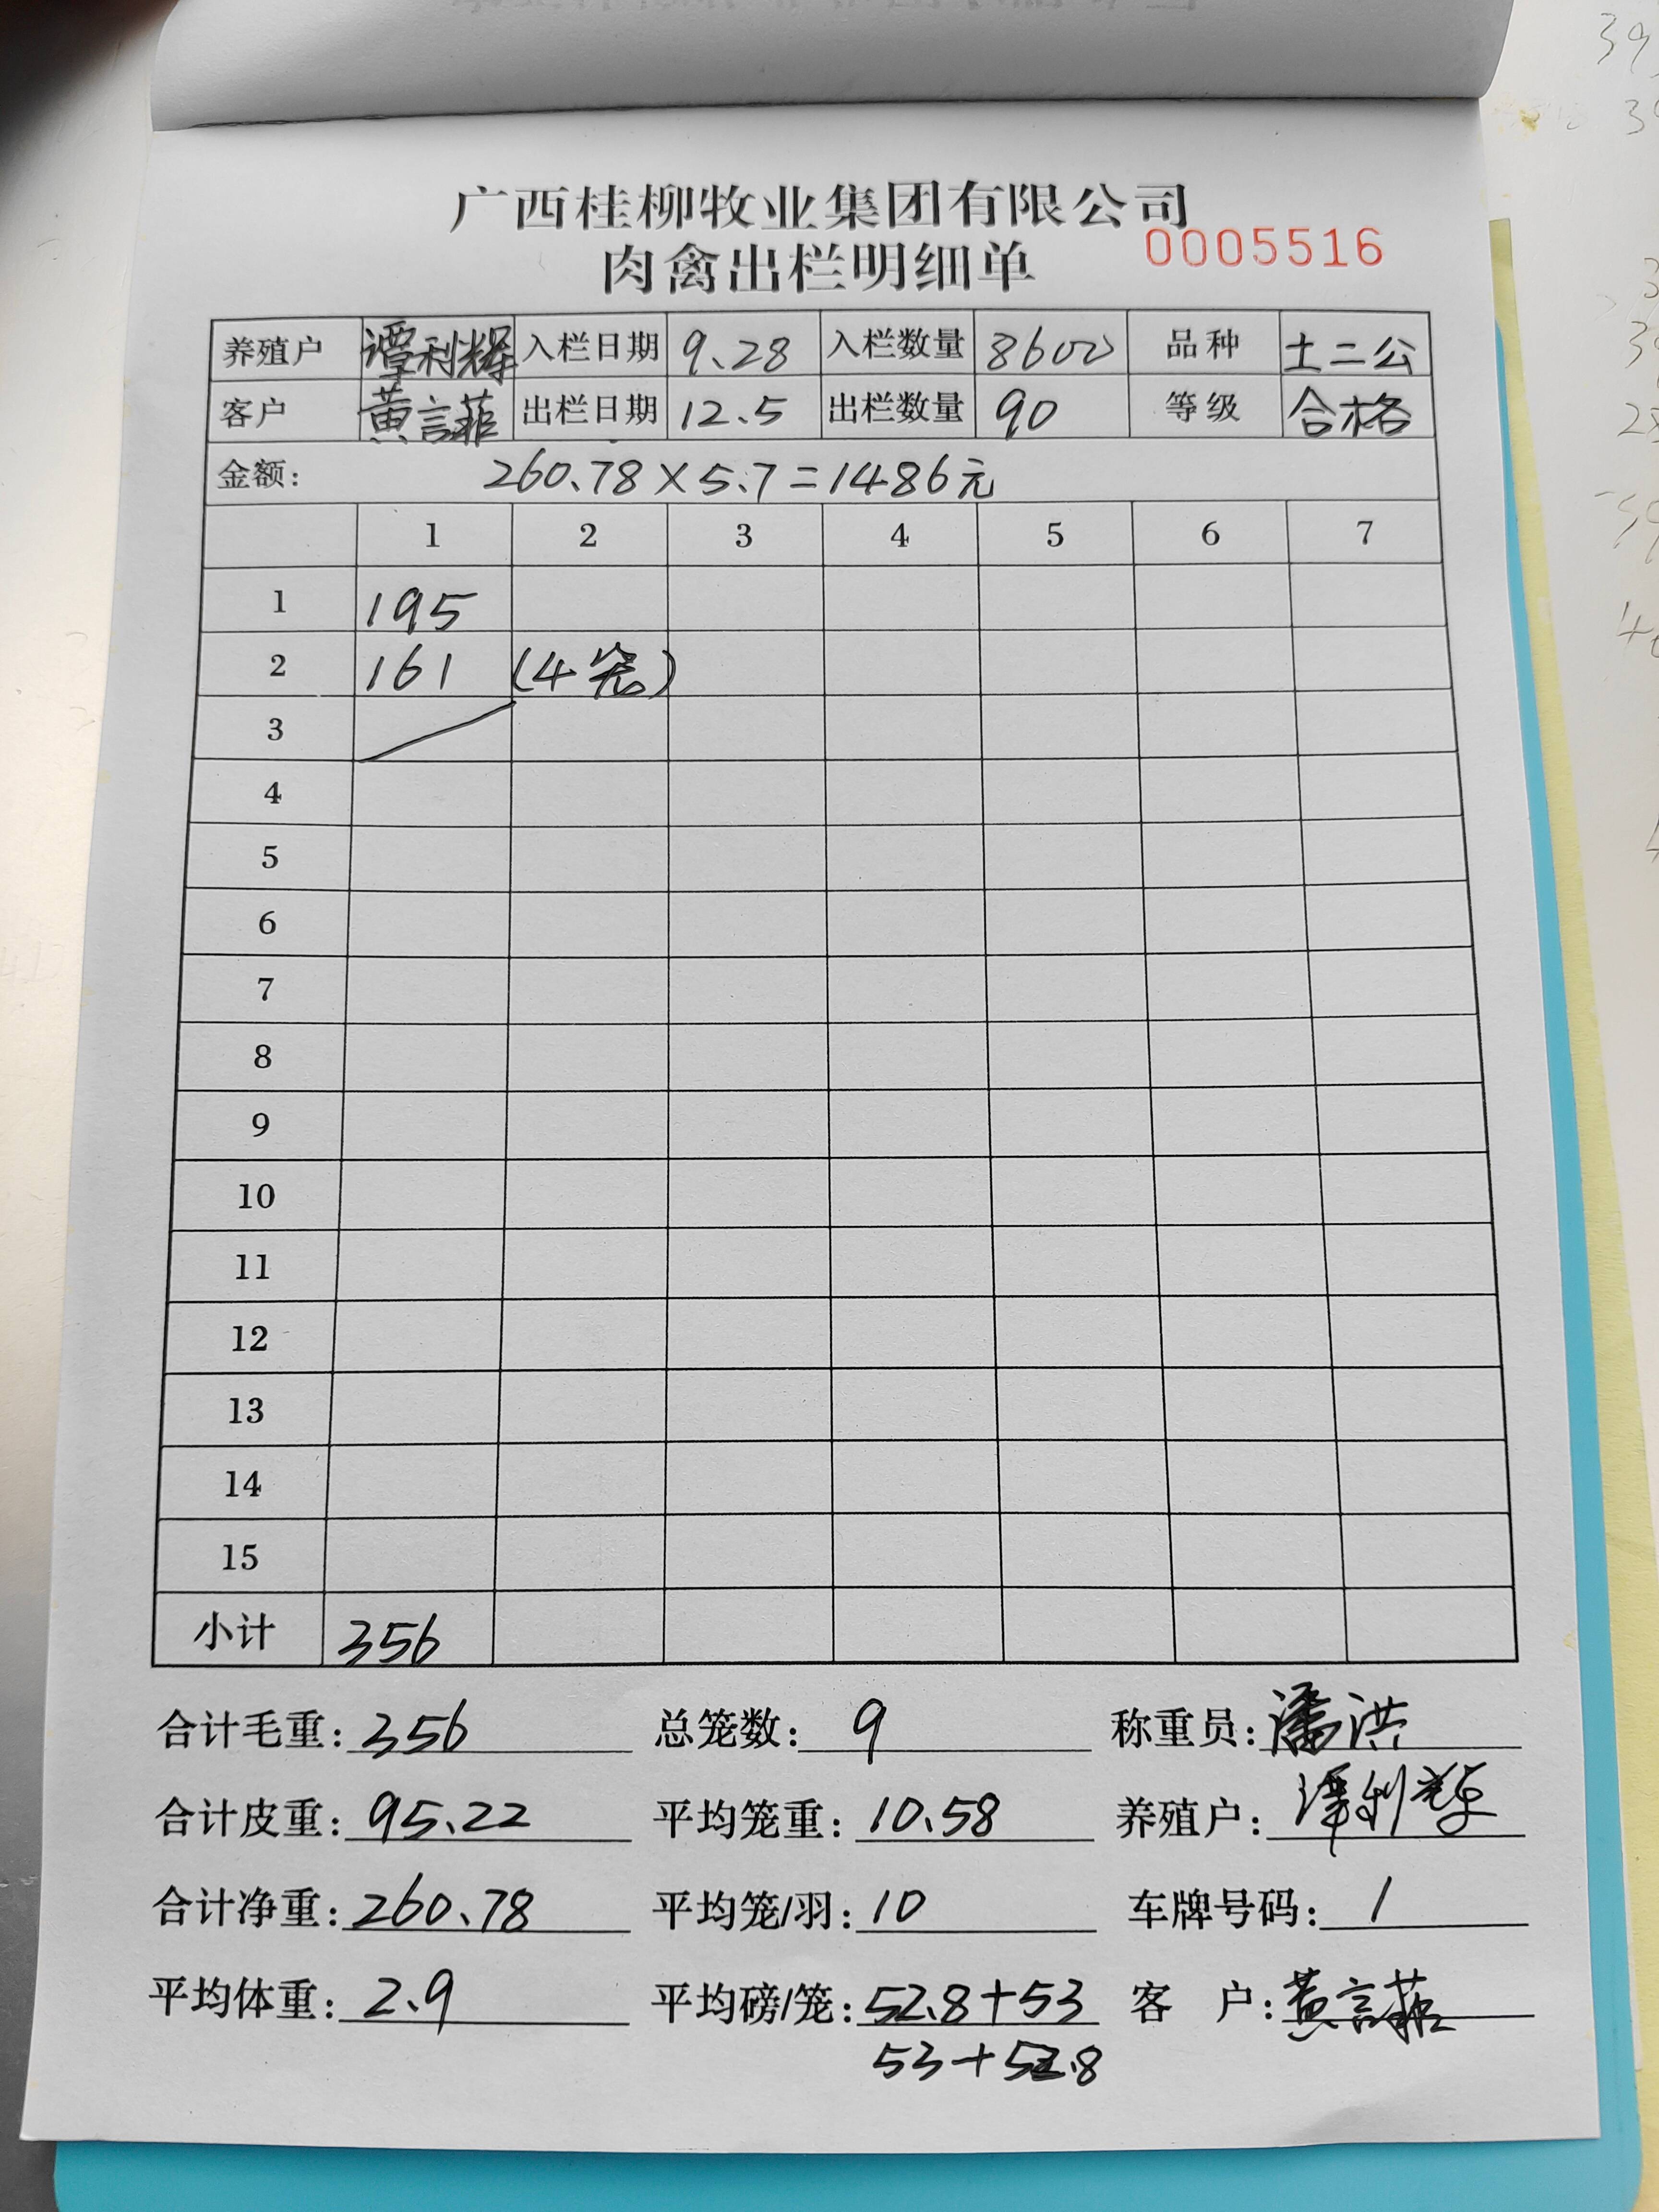 广西桂柳牧业集团有限公司
肉禽出栏明细单 0005516
养殖户 谭利辉 入栏日期 9.28 入栏数量 8600 品种 土二公
客户 黄言菲 出栏日期 12.5 出栏数量 90 等级 合格
金额: 260.78×5.7=1486元
1 2 3 4 5 6 7
1 195
2 161 (4笼)
3
4
5
6
7
8
9
10
11
12
13
14
15
小计 356
合计毛重: 356 总笼数: 9 称重员: 潘洪
合计皮重: 95.22 平均笼重: 10.58 养殖户: 谭利辉
合计净重: 260.78 平均笼/羽: 10 车牌号码: 1
平均体重: 2.9 平均磅/笼: 52.8+53 客 户: 黄言菲
53+52.8